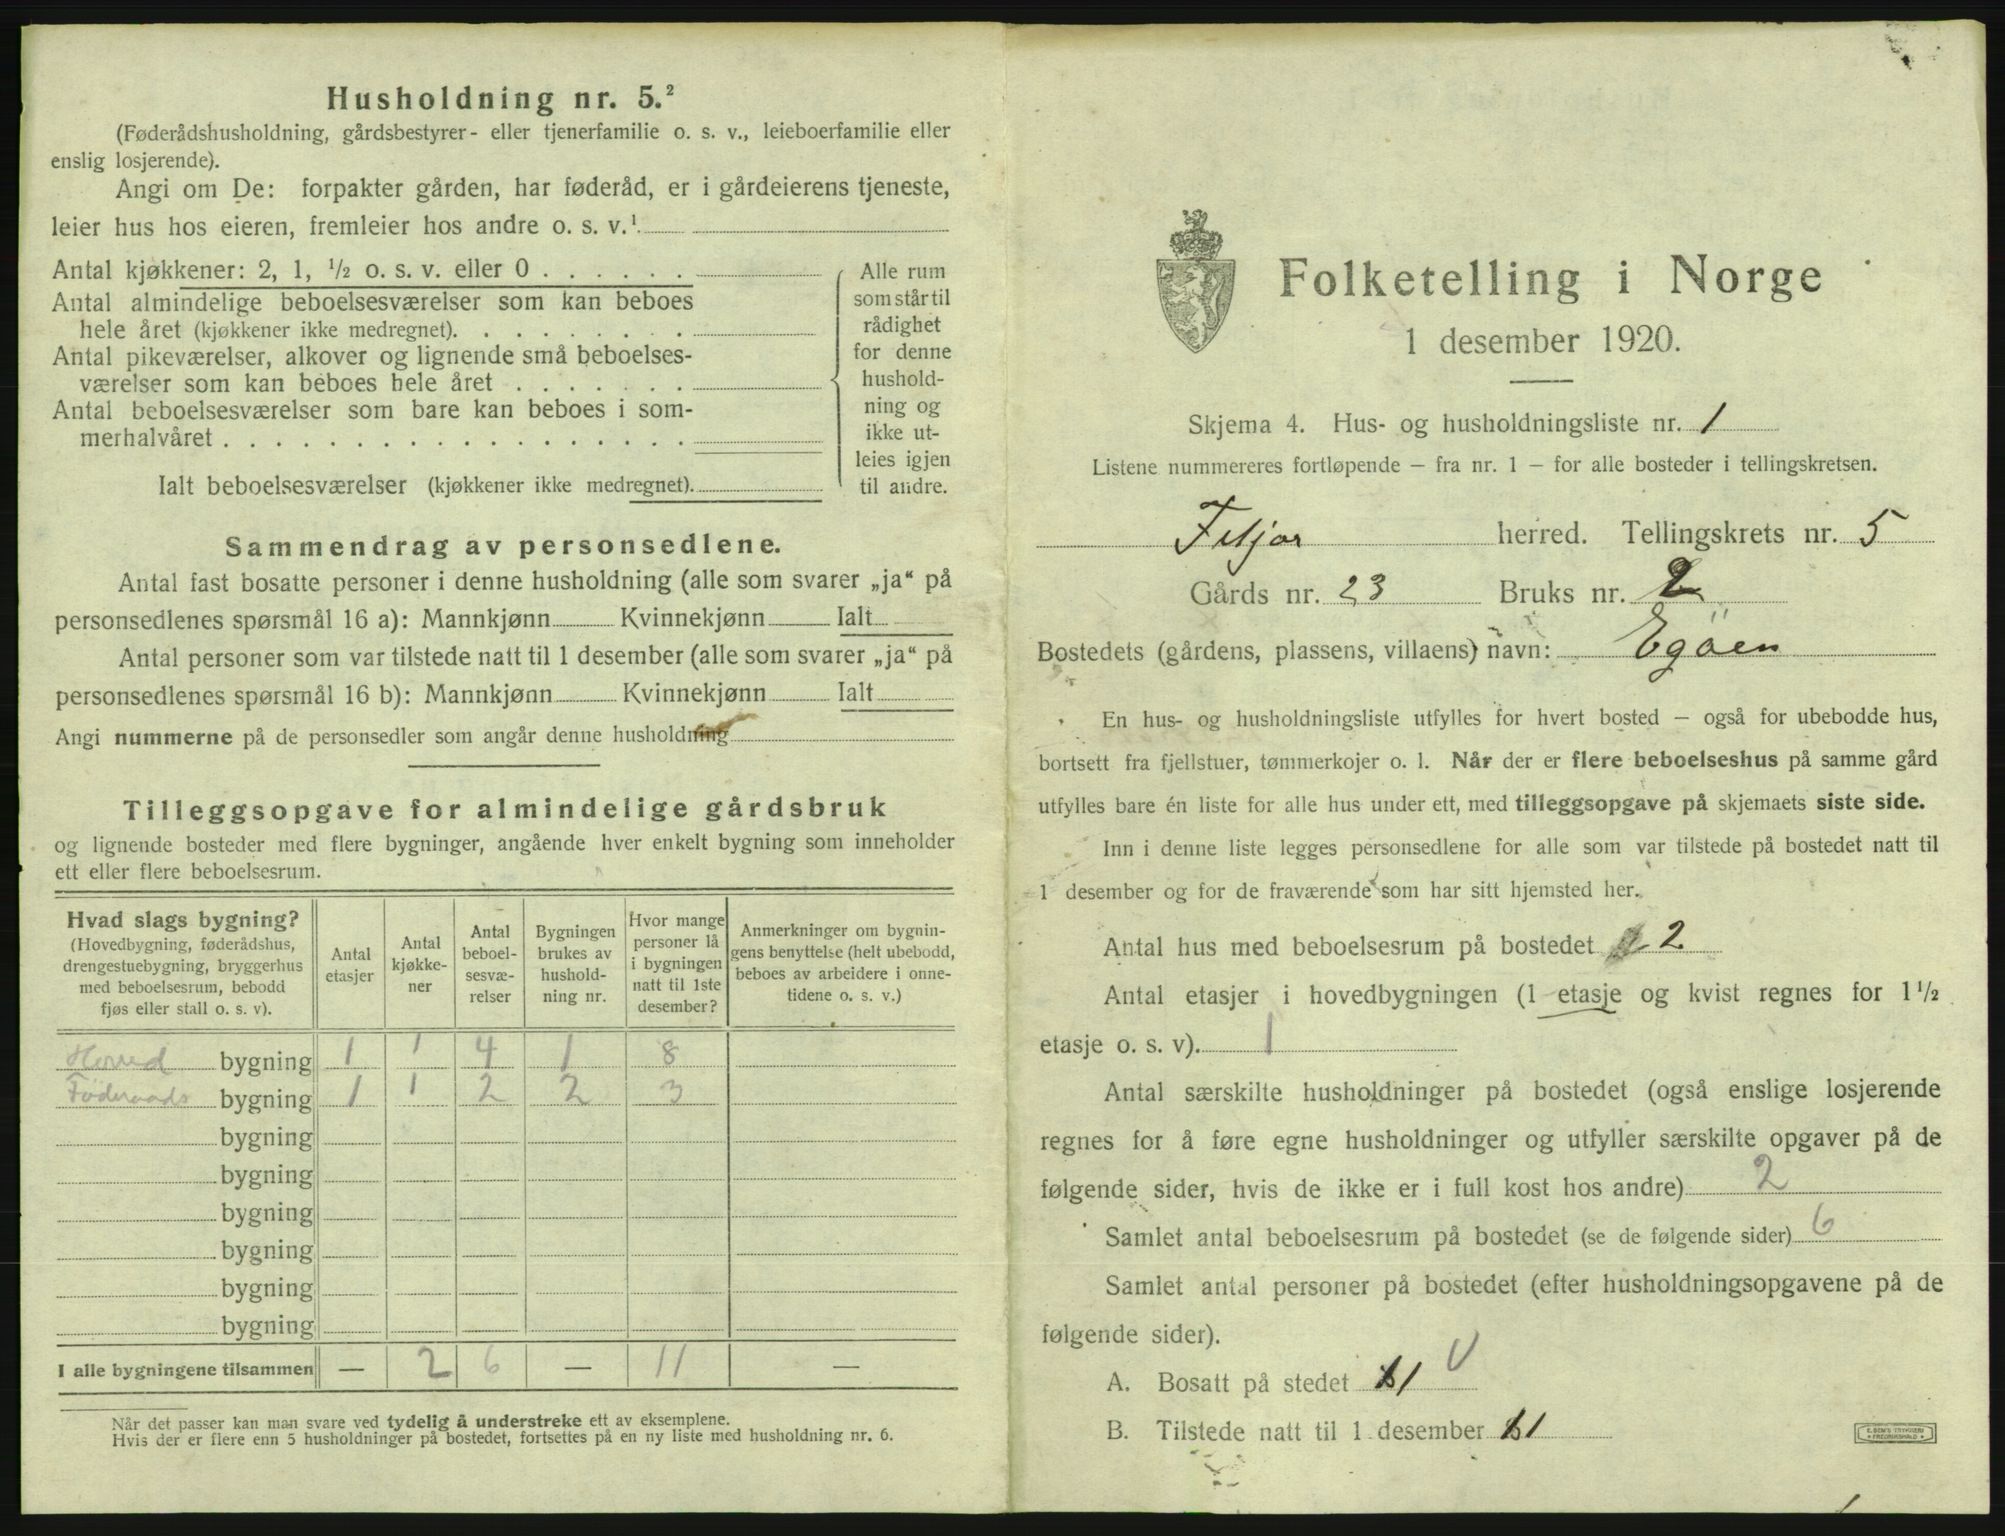 Husholdning nr. 5.²
(Føderådshusholdning, gårdsbestyrer- eller tjenerfamilie o. s. v., leieboerfamilie eller
enslig losjerende).
Angi om De: forpakter gården, har føderåd, er i gårdeierens tjeneste,
leier hus hos eieren, fremleier hos andre o. s. v.¹
Antal kjøkkener: 2, 1, ½ o. s. v. eller 0
Antal almindelige beboelsesværelser som kan beboes
hele året (kjøkkener ikke medregnet).
Antal pikeværelser, alkover og lignende små beboelses-
værelser som kan beboes hele året
Antal beboelsesværelser som bare kan beboes i som-
merhalvåret
Ialt beboelsesværelser (kjøkkener ikke medregnet).
Alle rum
som står til
rådighet
for denne
hushold-
ning og
ikke ut-
leies igjen
til andre.
Sammendrag av personsedlene.
Antal fast bosatte personer i denne husholdning (alle som svarer „ja“ på
personsedlenes spørsmål 16 a): Mannkjønn Kvinnekjønn Ialt
Antal personer som var tilstede natt til 1 desember (alle som svarer „ja“ på
personsedlenes spørsmål 16 b): Mannkjønn Kvinnekjønn Ialt
Angi nummerne på de personsedler som angår denne husholdning
Tilleggsopgave for almindelige gårdsbruk
og lignende bosteder med flere bygninger, angående hver enkelt bygning som inneholder
ett eller flere beboelsesrum.
Hvad slags bygning?
(Hovedbygning, føderådshus,
drengestuebygning, bryggerhus
med beboelsesrum, bebodd
fjøs eller stall o. s. v).
Antal
etasjer
Antal
kjøkke-
ner
Antal
beboel-
sesvæ-
relser
Bygningen
brukes av
hushold-
ning nr.
Hvor mange
personer lå
i bygningen
natt til 1ste
desember?
Anmerkninger om bygnin-
gens benyttelse (helt ubebodd,
beboes av arbeidere i onne-
tidene o. s. v.)
Hoved bygning 1 1 4 1 8
Föderaads bygning 1 1 2 2 3
bygning
bygning
bygning
bygning
bygning
bygning
I alle bygningene tilsammen — 2 6 — 11 —
Når det passer kan man svare ved tydelig å understreke ett av eksemplene.
Hvis der er flere enn 5 husholdninger på bostedet, fortsettes på en ny liste med husholdning nr. 6.
Folketelling i Norge
1 desember 1920.
Skjema 4. Hus- og husholdningsliste nr. 1
Listene nummereres fortløpende – fra nr. 1 – for alle bosteder i tellingskretsen.
Fitjar herred. Tellingskrets nr. 5
Gårds nr. 23 Bruks nr. 2
Bostedets (gårdens, plassens, villaens) navn: Egöen
En hus- og husholdningsliste utfylles for hvert bosted – også for ubebodde hus,
bortsett fra fjellstuer, tømmerkojer o. l. Når der er flere beboelseshus på samme gård
utfylles bare én liste for alle hus under ett, med tilleggsopgave på skjemaets siste side.
Inn i denne liste legges personsedlene for alle som var tilstede på bostedet natt til
1 desember og for de fraværende som har sitt hjemsted her.
Antal hus med beboelsesrum på bostedet 2
Antal etasjer i hovedbygningen (1 etasje og kvist regnes for 1½
etasje o. s. v). 1
Antal særskilte husholdninger på bostedet (også enslige losjerende
regnes for å føre egne husholdninger og utfyller særskilte opgaver på de
følgende sider, hvis de ikke er i full kost hos andre) 2
Samlet antal beboelsesrum på bostedet (se de følgende sider) 6
Samlet antal personer på bostedet (efter husholdningsopgavene på de
følgende sider).
A. Bosatt på stedet 11
B. Tilstede natt til 1 desember 11
E. SEM'S TRYKKERI
FREDRIKSHALD